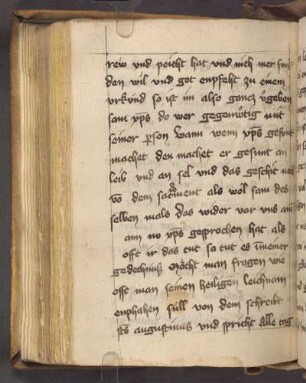 rew vnd peicht hat vnd nich mer sun
den wil vnd got enpfeht zu einem
vrkund so ist im also gancz vgeben
sam xps do wer gegenwurtig mit
seiner pson wann wenn xps gesunt
machet den machet er gesunt an
leib vnd an sel vnd das geschit
vo dem sacrment als wol sam des
selben mals das wider vor vns
ann no xps gesprochen hat als
offt ir das tut so tut es in meiner
gedechtnuß mocht man fragen wie
offt man seinen heiligen leichnam
enphahen sull von dem schreibt
sts augustinus vnd spricht alle tag